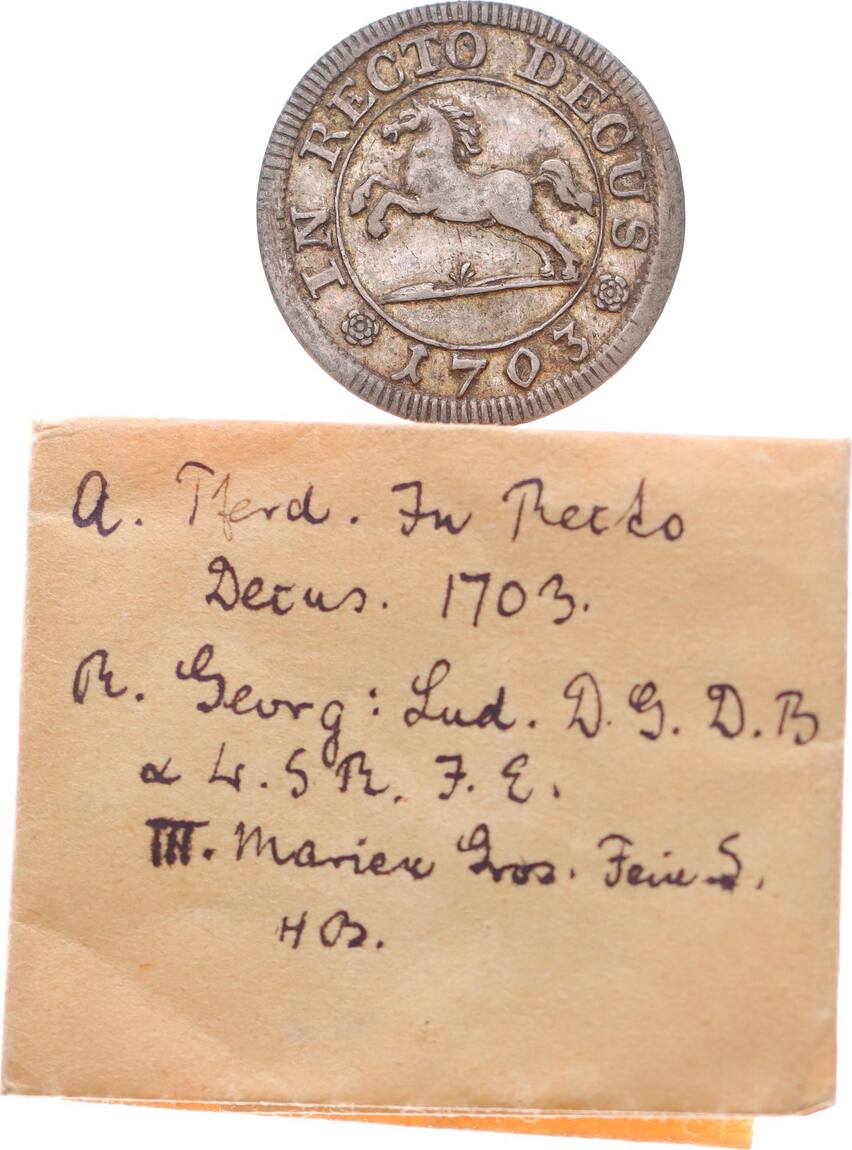 IN RECTO DECUS
1703
A. Pferd. In Recto
Decus. 1703.
R. Georg: Lud. D. G. D. B
& L. S R. F. E.
III. Marien Gros. Fein S.
HB.